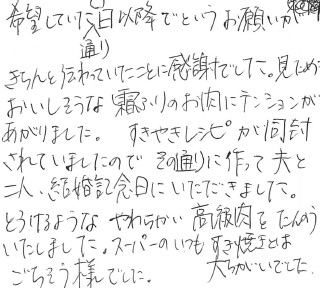 希望していた日以降でというお願いが
通り
きちんと伝わっていたことに感謝でした。見ため
おいしそうな霜ふりのお肉にテンションが
あがりました。 すきやきレシピが同封
されていましたので その通りに作って夫と
二人、結婚記念日にいただきました。
とろけるような やわらかい 高級肉をたんのう
いたしました。スーパーのいつもすき焼きとは
ごちそう様でした。 大ちがいでした